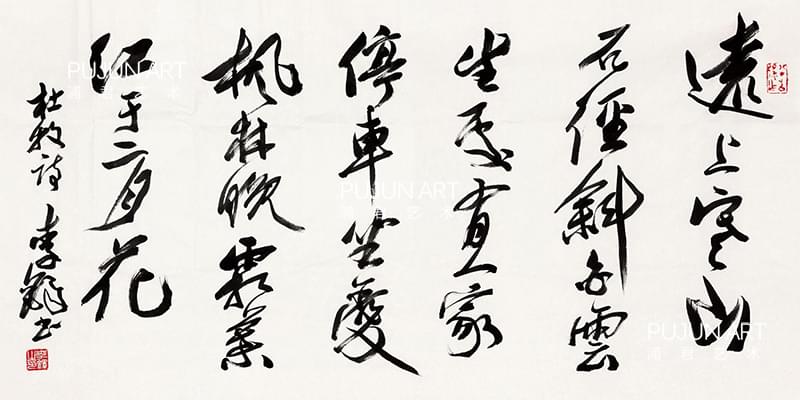 遠上寒山
石徑斜白雲
生處有人家
停車坐愛
楓林晚霜葉
紅于二月花
杜牧詩
李 书
PUJUN ART
浦君艺术
PUJUN ART
浦君艺术
PUJUN ART
浦君艺术